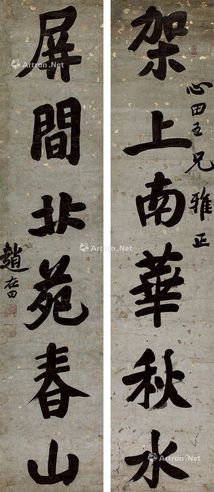 架上南華秋水
心田五兄雅正
屏間北苑春山
趙在田